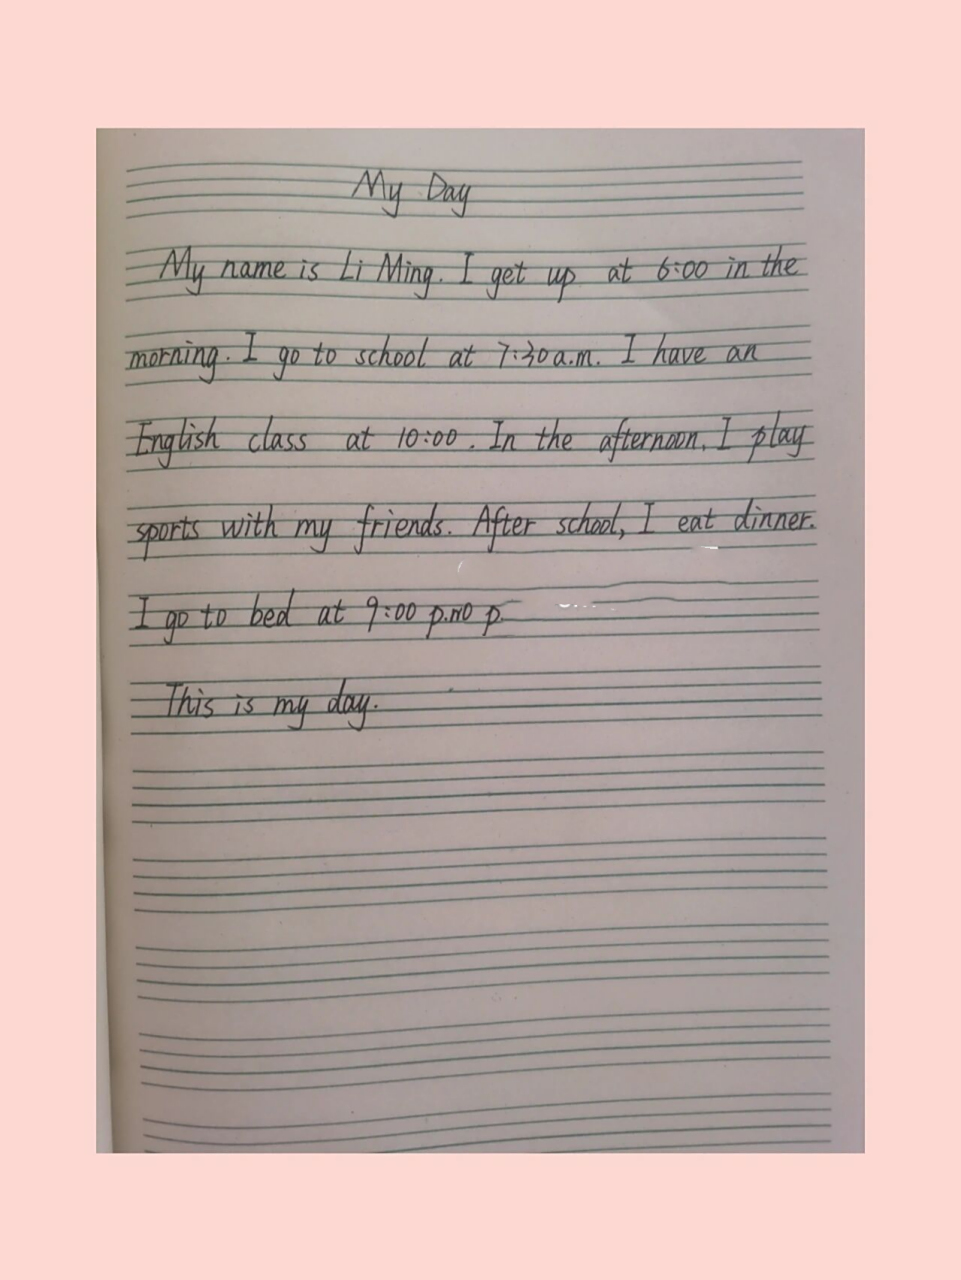 My Day
My name is Li Ming. I get up at 6:00 in the
morning. I go to school at 7:30 a.m. I have an
English class at 10:00. In the afternoon. I play
sports with my friends. After school, I eat dinner.
I go to bed at 9:00 p.
This is my day.